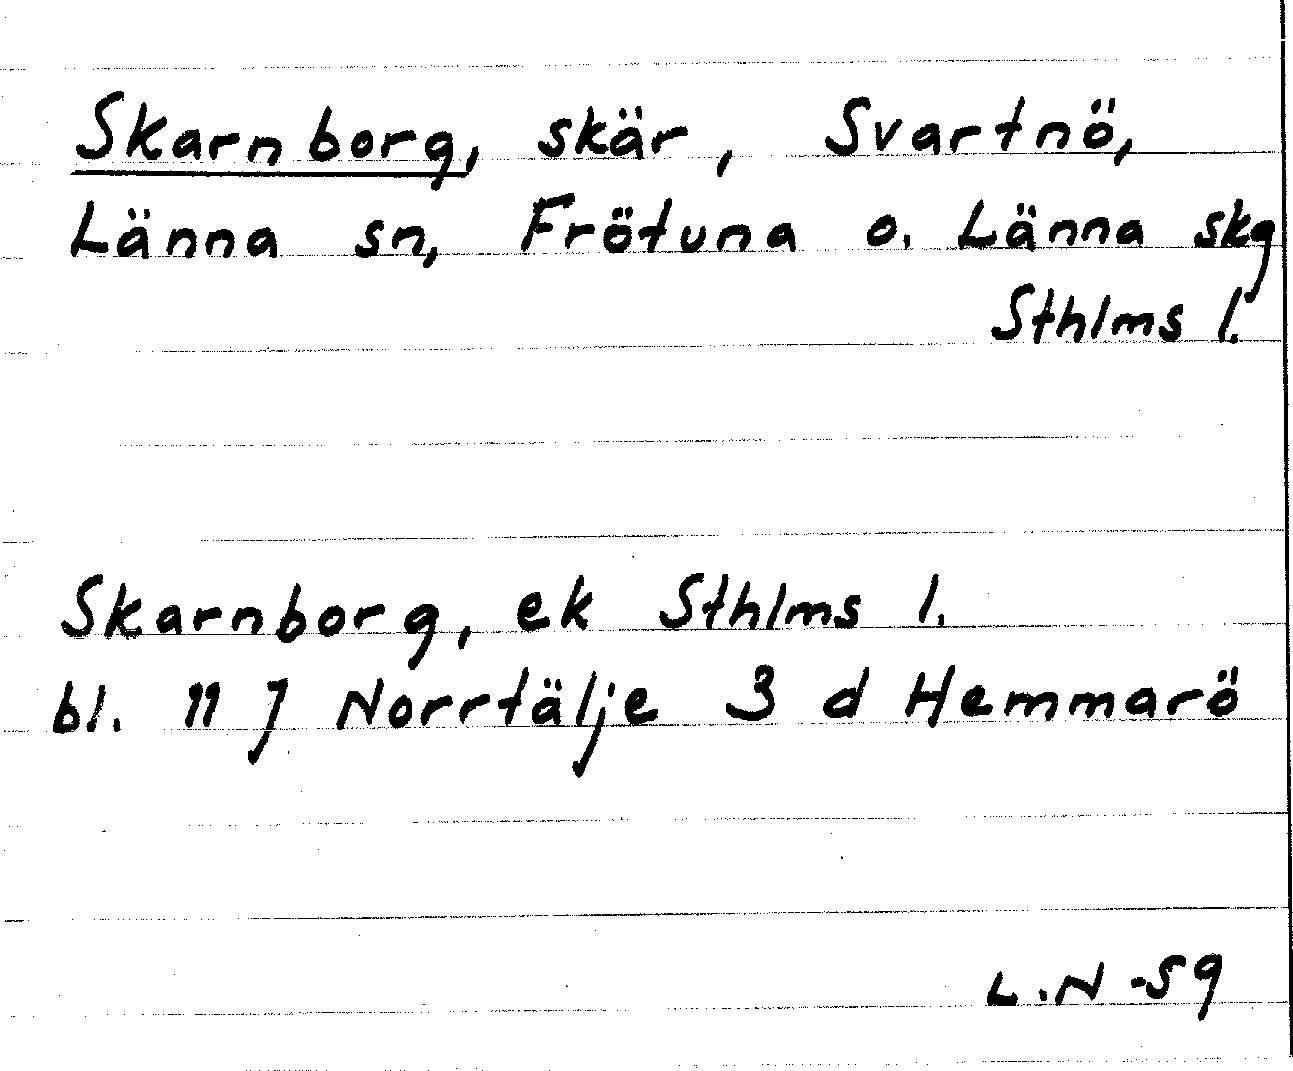 Skarnborg, skär, Svartnö,
Länna sn, Frötuna o. Länna skg
Sthlms l.
Skarnborg, ek Sthlms l.
bl. 11 J Norrtälje 3 d Hemmarö
L.N -59